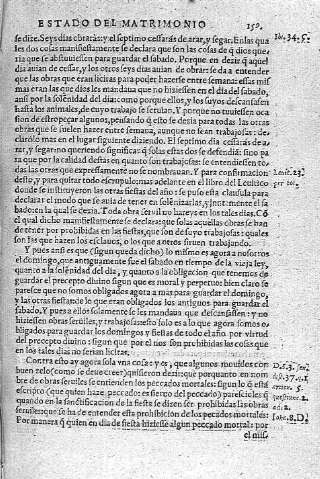 ESTADO DEL MATRIMONIO 150.
se dize. Seys dias obrarâ: y el septimo cessarás de arar, y segar. En las qua
les dos cosas manifiestamente se declara que son las cosas de q̃ dios que-
ria que se abstuuiessen para guardar el sabado. Porque en dezir q̃ aquel
dia auian de cessar, y los otros seys dias auian de obrar: se da a entender
que las obras que eran licitas para poder hazerse entre semana: essas mis
mas eran las que dios les mandaua que no hiziessen en el dia del sabado,
ansi por la solenidad del dia: como porque ellos, y los suyos descansassen
hasta los animales, de cuyo trabajo se seruian. Y porque no tuuiessen oca
sion de estropeçar algunos, pensando q̃ esto se dezia para todas las otras
obras que se suelen hazer entre semana, aunque no sean trabajosas: de-
clarólo mas en el lugar siguiente diziendo. El septimo dia cessarás de a-
rar, y segar: no queriendo significar q̃ solas estas dos se defendiã: sino pa
ra que por la calidad destas en quanto son trabajosas: se entendiessen to-
das las otras que expressamente no se nombrauan. Y para confirmacion
desto, y para quitar todo escrupulo: mas adelante en el libro del Leuitico
donde se instituyeron las otras fiestas del año: se puso esta clausula para
declarar el modo que se auia de tener en solenizarlas, y juntamente el sa
bado: en la qual se dezia. Toda obra seruil no hareys en los tales dias. Cõ
el qual dicho manifiestamente se declara: que solas aquellas obras se han
de tener por prohibidas en las fiestas, que son de suyo trabajosas: quales
son las que hazen los esclauos, o los que a otros siruen trabajando.
Y pues ansi es que (sigun queda dicho) lo mismo es agora a nosotros
el domingo, que antiguamente fue el sabado en tiempo de la vieja ley,
quanto a la solenidad del dia, y quanto a la obligacion que tenemos de
guardar el precepto diuino sigun que es moral y perpetuo: bien claro se
paresce que no somos obligados agora a mas para guardar el domingo,
y las otras fiestas: de lo que eran obligados los antiguos para guardar el
sabado. Y pues a ellos solamente se les mandaua que descansassen: y no
hiziessen obras seruiles, y trabajosas: esso solo es a lo que agora somos o-
bligados para guardar los domingos y fiestas de todo el año por virtud
del precepto diuino: sigun que por el nos son prohibidas las cosas que
en los tales dias no serian licitas.
Contra esto ay agora sola vna cosa: y es, que algunos mouidos con
buen zelo (como se deue creer) quisieron dezir: que porquanto en nom
bre de obras seruiles se entienden los peccados mortales: sigun lo q̃ está
escripto (que quien haze peccado: es sieruo del peccado) paresciales q̃
quando en la sanctificacion de la fiesta se dizen ser prohibidas las obras
seruiles: que se ha de entender esta prohibicion de los peccados mortales:
Por manera q̃ quien en dia de fiesta hiziesse algun peccado mortal: por
el mis-